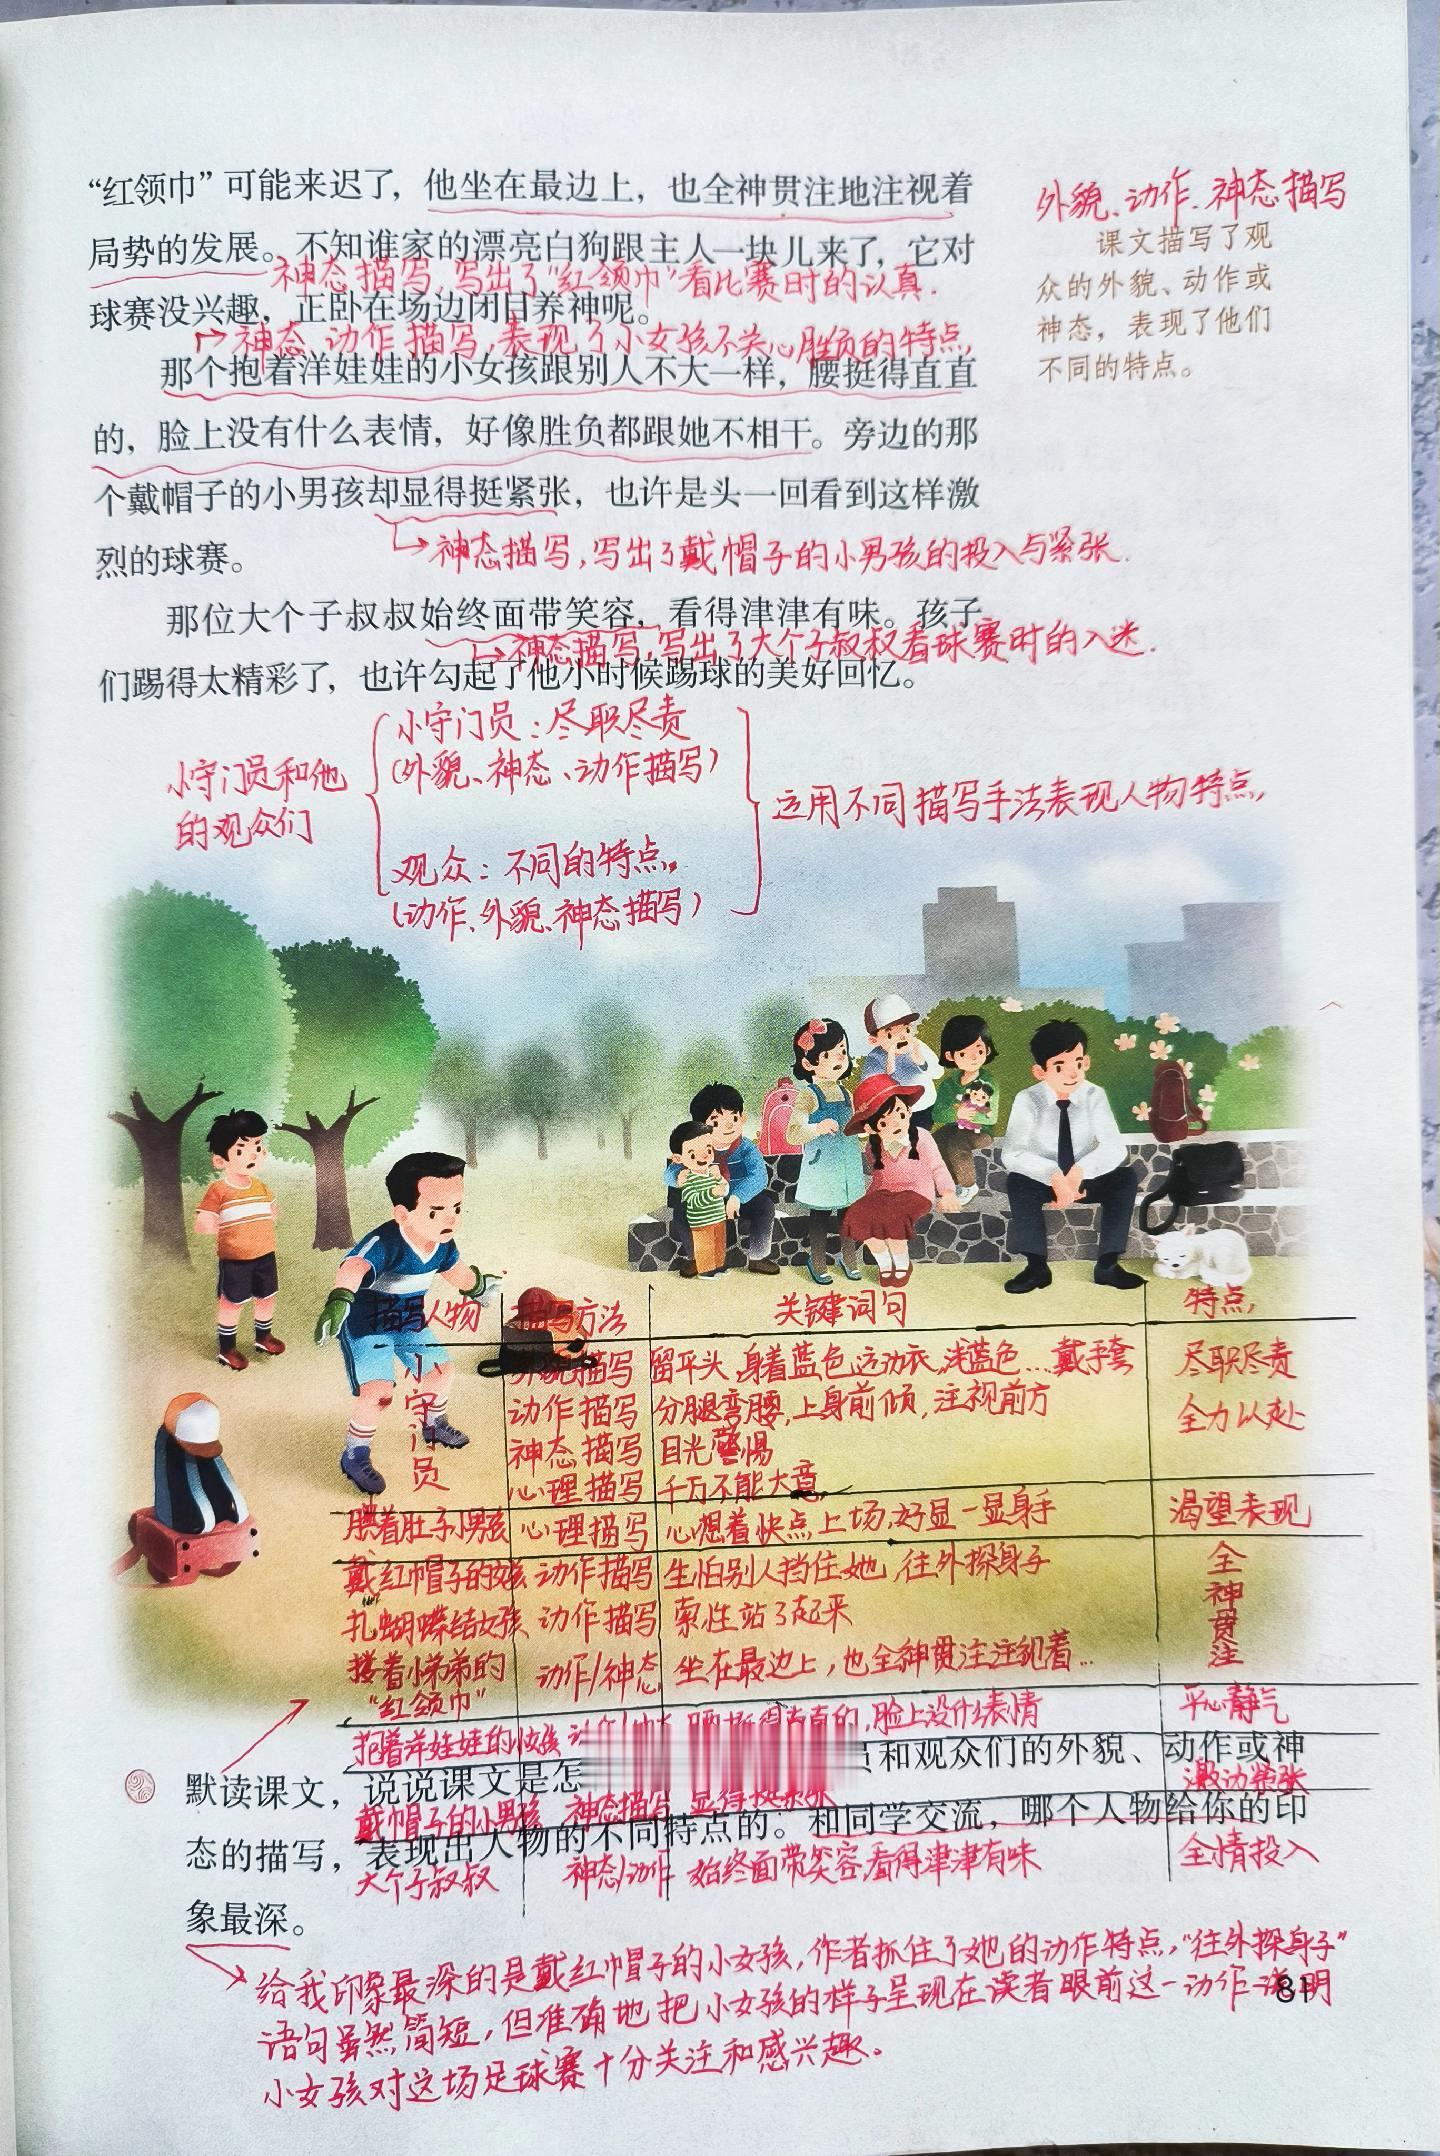 “红领巾”可能来迟了，他坐在最边上，也全神贯注地注视着
局势的发展。不知谁家的漂亮白狗跟主人一块儿来了，它对
神态描写,写出了“红领巾”看比赛时的认真.
球赛没兴趣，正卧在场边闭目养神呢。
神态、动作描写,表现了小女孩不关心胜负的特点,
那个抱着洋娃娃的小女孩跟别人不大一样，腰挺得直直
的，脸上没有什么表情，好像胜负都跟她不相干。旁边的那
个戴帽子的小男孩却显得挺紧张，也许是头一回看到这样激
烈的球赛。
神态描写,写出了戴帽子的小男孩的投入与紧张.
那位大个子叔叔始终面带笑容，看得津津有味。孩子
神态描写,写出了大个子叔叔看球赛时的入迷.
们踢得太精彩了，也许勾起了他小时候踢球的美好回忆。
外貌、动作、神态描写
课文描写了观
众的外貌、动作或
神态，表现了他们
不同的特点。
小守门员和他
的观众们
小守门员:尽职尽责
(外貌、神态、动作描写)
观众:不同的特点。
(动作、外貌、神态描写)
运用不同描写手法表现人物特点,
描写人物 描写方法 关键词句 特点,
小守门员 外貌描写 留平头,身着蓝色运动衣,浅蓝色…戴手套 尽职尽责
动作描写 分腿弯腰,上身前倾,注视前方 全力以赴
神态描写 目光警惕
心理描写 千万不能大意
腆着肚子小男孩 心理描写 心想着快点上场,好显一显身手 渴望表现
戴红帽子的女孩 动作描写 生怕别人挡住她,往外探身子 全神贯注
扎蝴蝶结女孩 动作描写 索性站了起来
搂着小弟弟的 动作/神态 坐在最边上,也全神贯注注视着…
“红领巾”
抱着洋娃娃的女孩 脸上没什么表情 平心静气
默读课文，说说课文是怎 员和观众们的外貌、动作或神
戴帽子的小男孩 神态描写 显得挺紧张 激动紧张
态的描写，表现出人物的不同特点的。和同学交流，哪个人物给你的印
大个子叔叔 神态/动作 始终面带笑容,看得津津有味 全情投入
象最深。
给我印象最深的是戴红帽子的小女孩,作者抓住了她的动作特点,“往外探身子”
语句虽然简短,但准确地把小女孩的样子呈现在读者眼前这一动作说明
小女孩对这场足球赛十分关注和感兴趣。
81